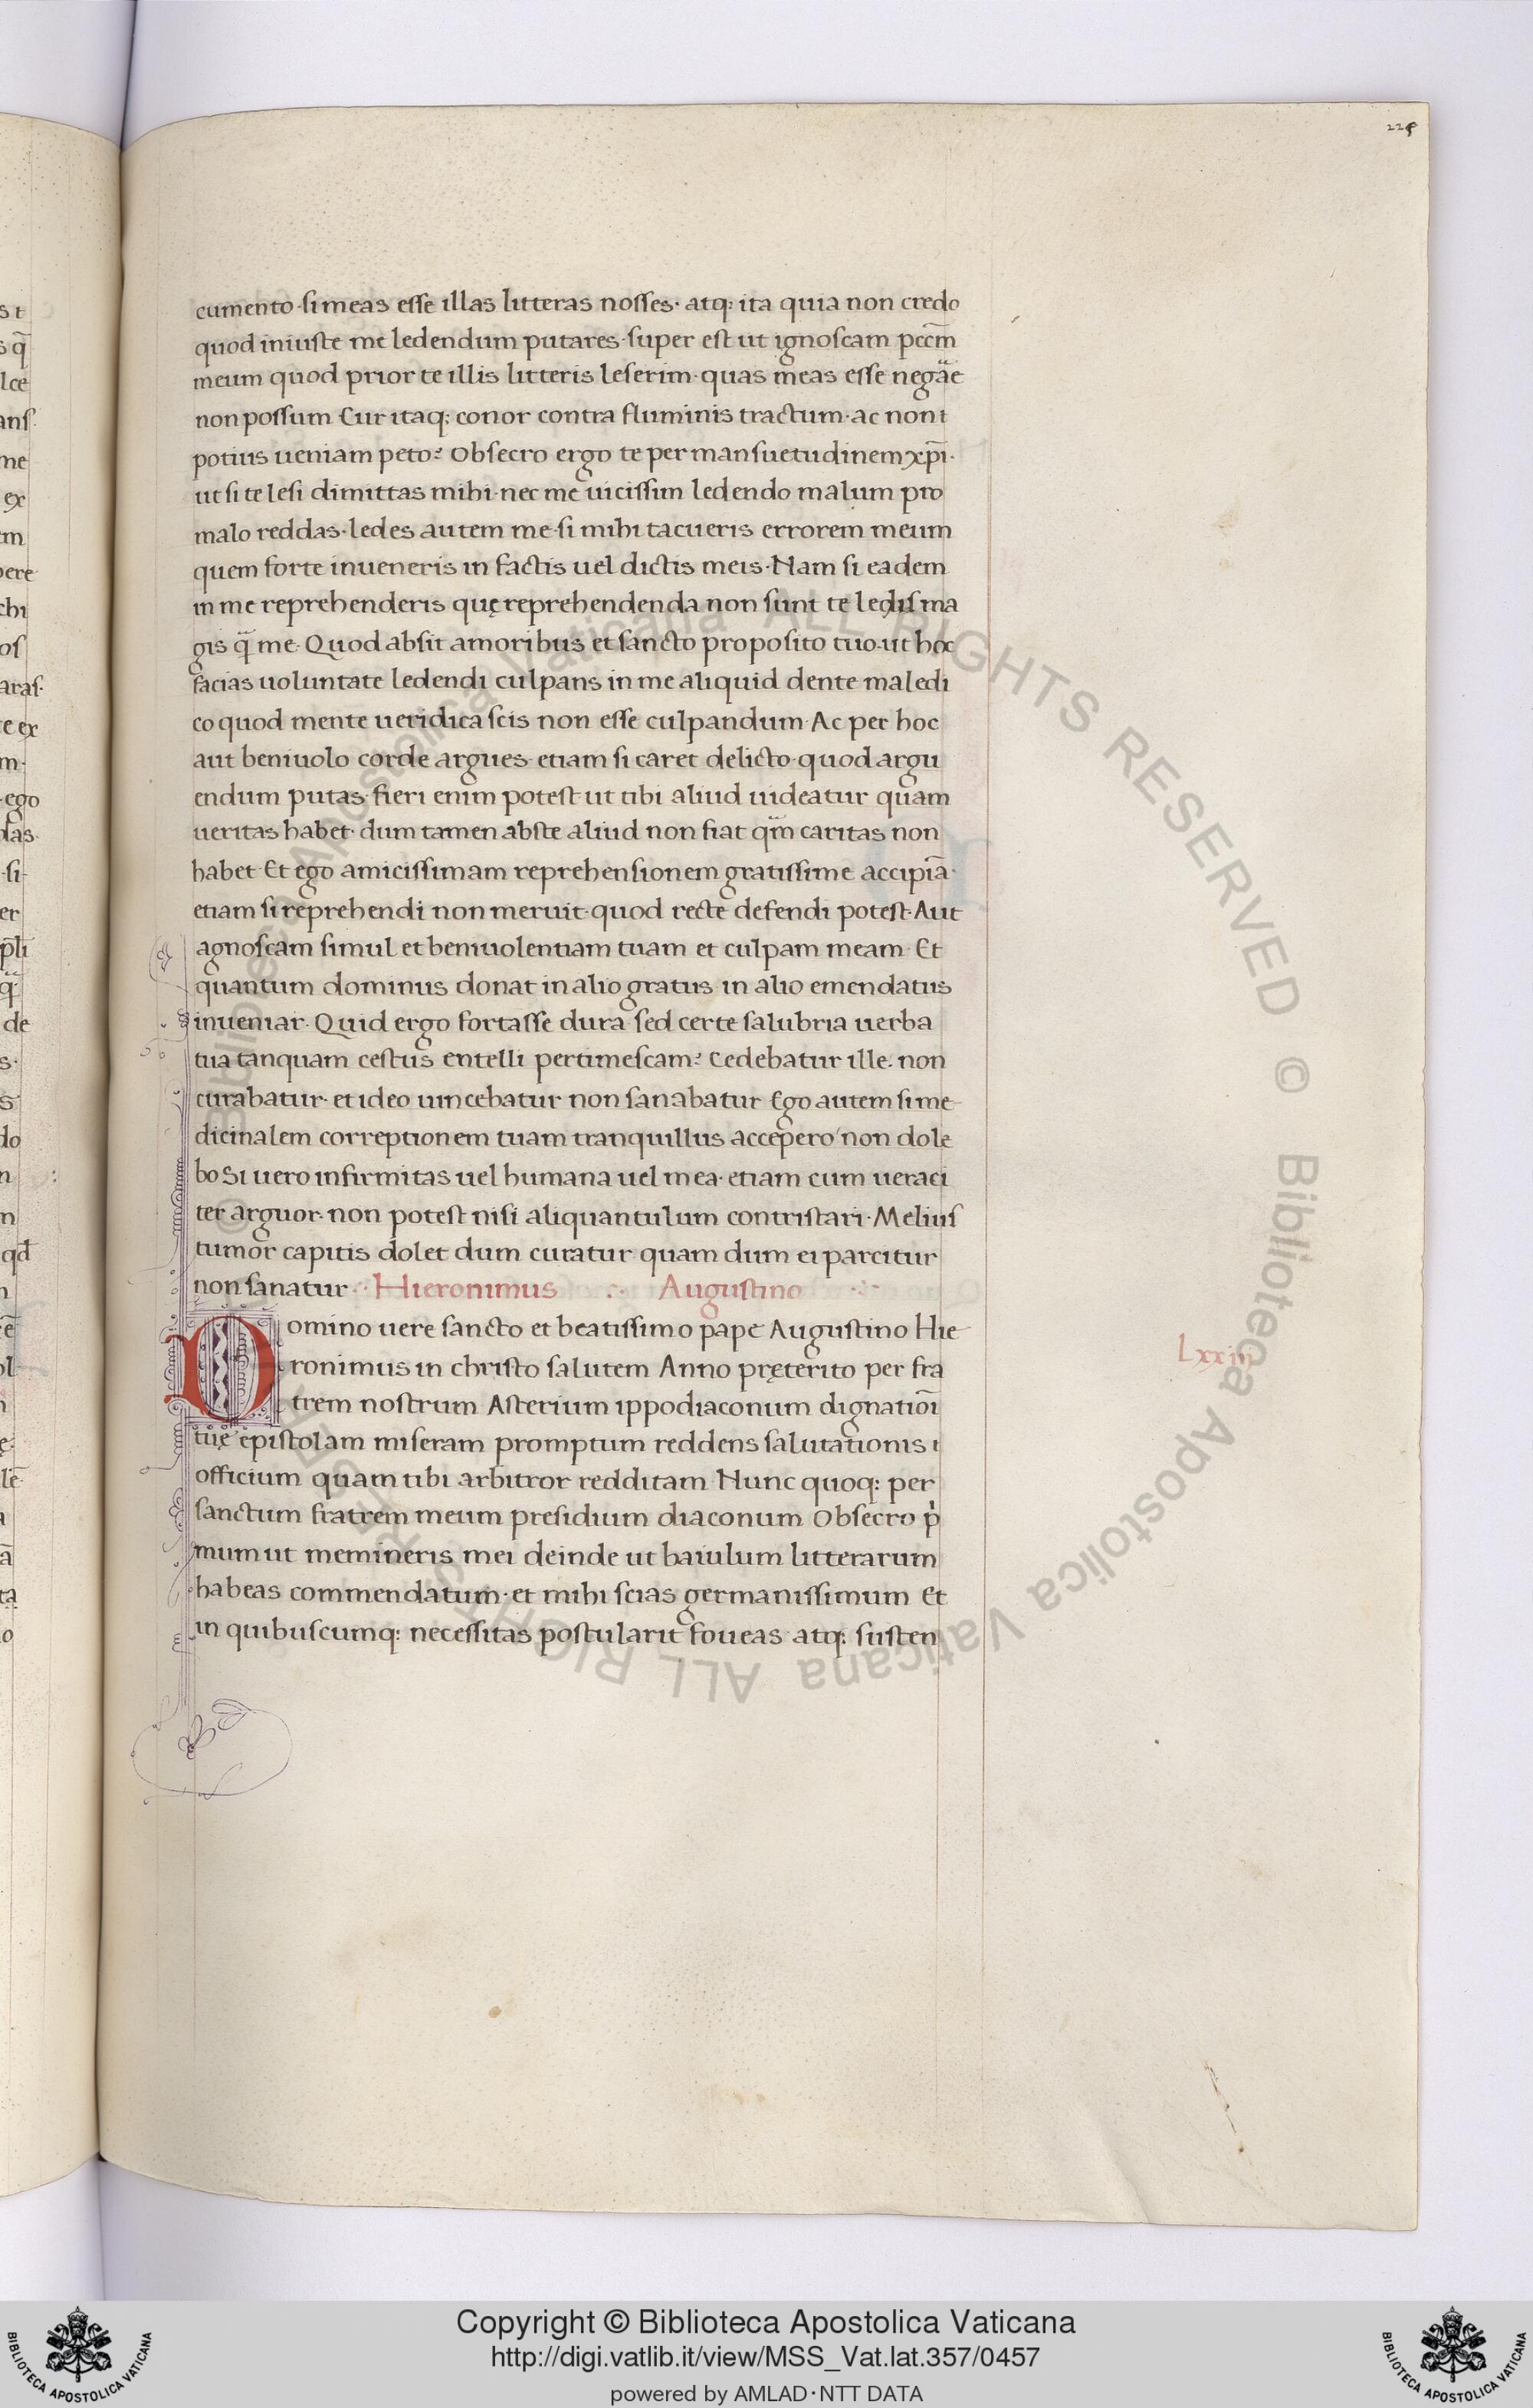 225
cumento·si meas esse illas litteras nosses· atq: ita quia non credo
quod iniuste me ledendum putares·super est ut ignoscam pccm̄
meum quod prior te illis litteris leserim·quas meas esse negar̄e
non possum Cur itaq: conor contra fluminis tractum·ac non
potius ueniam peto? Obsecro ergo te per mansuetudinem xp̄i·
ut si te lesi dimittas mihi·nec me uicissim ledendo malum pro
malo reddas·ledes autem me·si mihi tacueris errorem meum
quem forte inueneris in factis uel dictis meis·Nam si eadem
in me reprehenderis quę reprehendenda non sunt te ledis ma
gis q̄ me·Quod absit a moribus et sancto proposito tuo·ut hoc
facias uoluntate ledendi culpans in me aliquid dente maledi
co quod mente ueridica scis non esse culpandum·Ac per hoc
aut beniuolo corde argues·etiam si caret delicto·quod argu
endum putas·fieri enim potest ut tibi aliud uideatur quam
ueritas habet·dum tamen abs te aliud non fiat qm̄ caritas non
habet·Et ego amicissimam reprehensionem gratissime accipiā·
etiam si reprehendi non meruit·quod recte defendi potest·Aut
agnoscam simul et beniuolentiam tuam et culpam meam·Et
quantum dominus donat in alio gratus in alio emendatus
inueniar·Quid ergo fortasse dura·sed certe salubria uerba
tua tanquam cestus entelli pertimescam? Cedebatur ille·non
curabatur·et ideo uincebatur non sanabatur Ego autem si me
dicinalem correptionem tuam tranquillus accepero non dole
bo Si uero infirmitas uel humana uel mea·etiam cum ueraci
ter arguor·non potest nisi aliquantulum contristari·Melius
tumor capitis dolet dum curatur quam dum ei parcitur
non sanatur·Hieronimus Augustino
Domino uere sancto et beatissimo pape Augustino Hie
ronimus in christo salutem Anno pręterito per fra
trem nostrum Asterium ippodiaconum dignatiōi
tuę epistolam miseram promptum reddens salutationis
officium quam tibi arbitror redditam Nunc quoq: per
sanctum fratrem meum presidium diaconum Obsecro pi
mum ut memineris mei deinde ut baiulum litterarum
habeas commendatum·et mihi scias germanissimum Et
in quibuscumq: necessitas postularit foueas atq: susten
Copyright © Biblioteca Apostolica Vaticana
http://digi.vatlib.it/view/MSS_Vat.lat.357/0457
powered by AMLAD·NTT DATA
BIBLIOTECA APOSTOLICA VATICANA
BIBLIOTECA APOSTOLICA VATICANA
© Biblioteca Apostolica Vaticana ALL RIGHTS RESERVED © Biblioteca Apostolica Vaticana ALL RIGHTS RESERVED